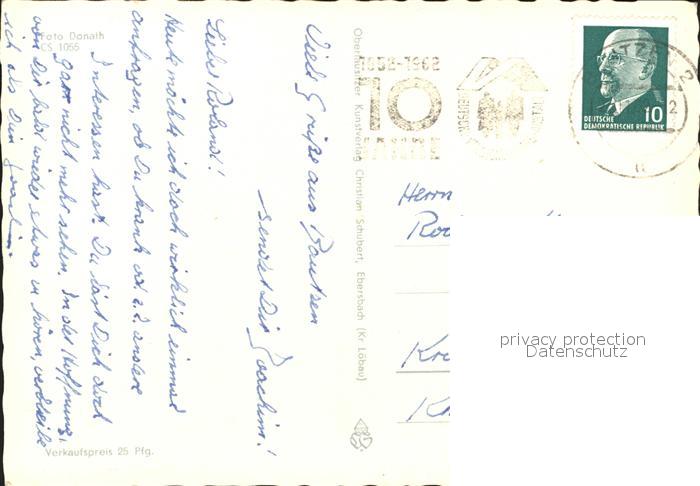 Foto Donath
CS 1055
Viele Grüße aus Bautzen
sendet Dir Joachim!
Lieber Roland!
Heute möchte ich doch wirklich einmal
anfragen, ob Du krank od. z. andere
Interessen hast. Du läßt Dich doch
gar nicht mehr sehen. In der Hoffnung,
von Dir bald wieder etwas zu hören, verbleibe
ich Dein Joachim.
Verkaufspreis 25 Pfg.
Oberlausitzer Kunstverlag Christian Schubert, Ebersbach (Kr Löbau)
1952-1962
10
JAHRE
10
DEUTSCHE
DEMOKRATISCHE REPUBLIK
Herrn
privacy protection
Datenschutz